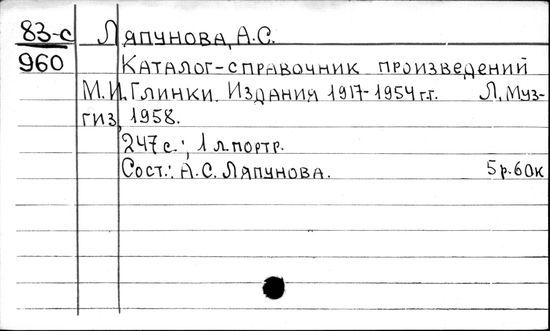 83-с Ляпунова, А.С.
960 Каталог-справочник произведений
М.И. Глинки. Издания 1917-1954 г.г. Л, Муз-
гиз, 1958.
247 с.; 1 л. портр.
Сост.: А.С. Ляпунова. 5 р. 60 к